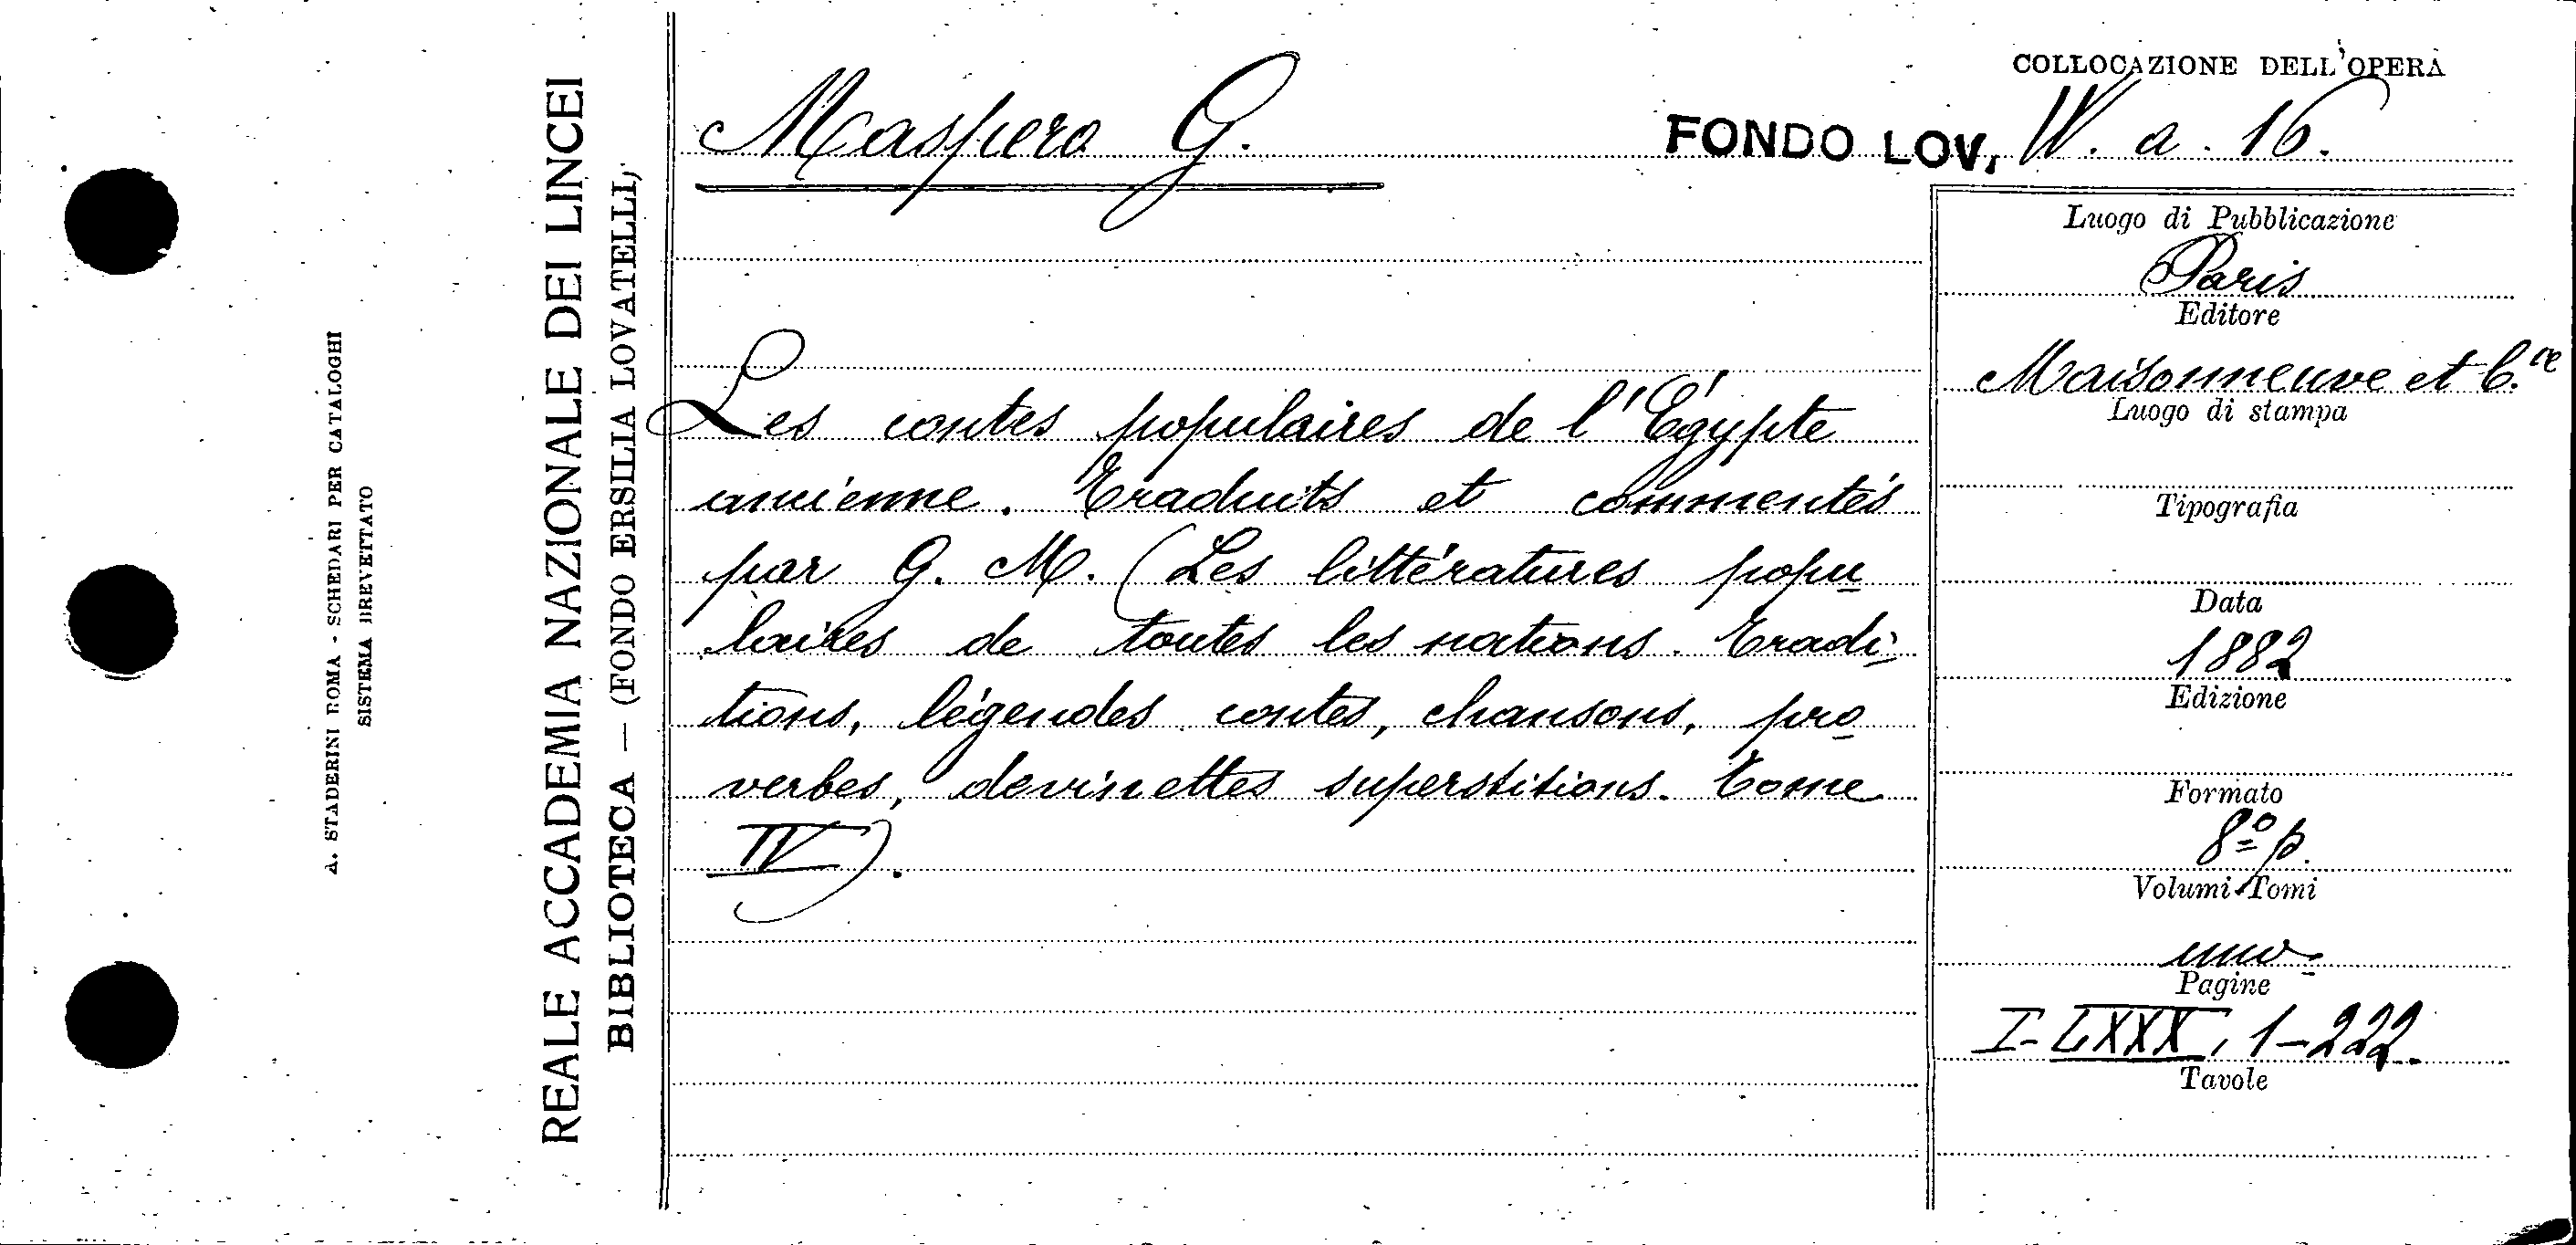 A. STADERINI ROMA - SCHEDARI PER CATALOGHI
SISTEMA BREVETTATO
REALE ACCADEMIA NAZIONALE DEI LINCEI
BIBLIOTECA — (FONDO ERSILIA LOVATELLI)
COLLOCAZIONE DELL'OPERA
Maspero G.
FONDO LOV, W. a. 16.
Les contes populaires de l'Égypte
ancienne. Traduits et commentés
par G. M. (Les littératures popu
laires de toutes les nations. Tradi-
tions, légendes contes, chansons, pro
verbes, devinettes superstitions. Tome
IV).
Luogo di Pubblicazione
Paris
Editore
Maisonneuve et C.ie
Luogo di stampa
Tipografia
Data
1882
Edizione
Formato
8º p.
Volumi-Tomi
uno
Pagine
I-LXXX, 1-222.
Tavole